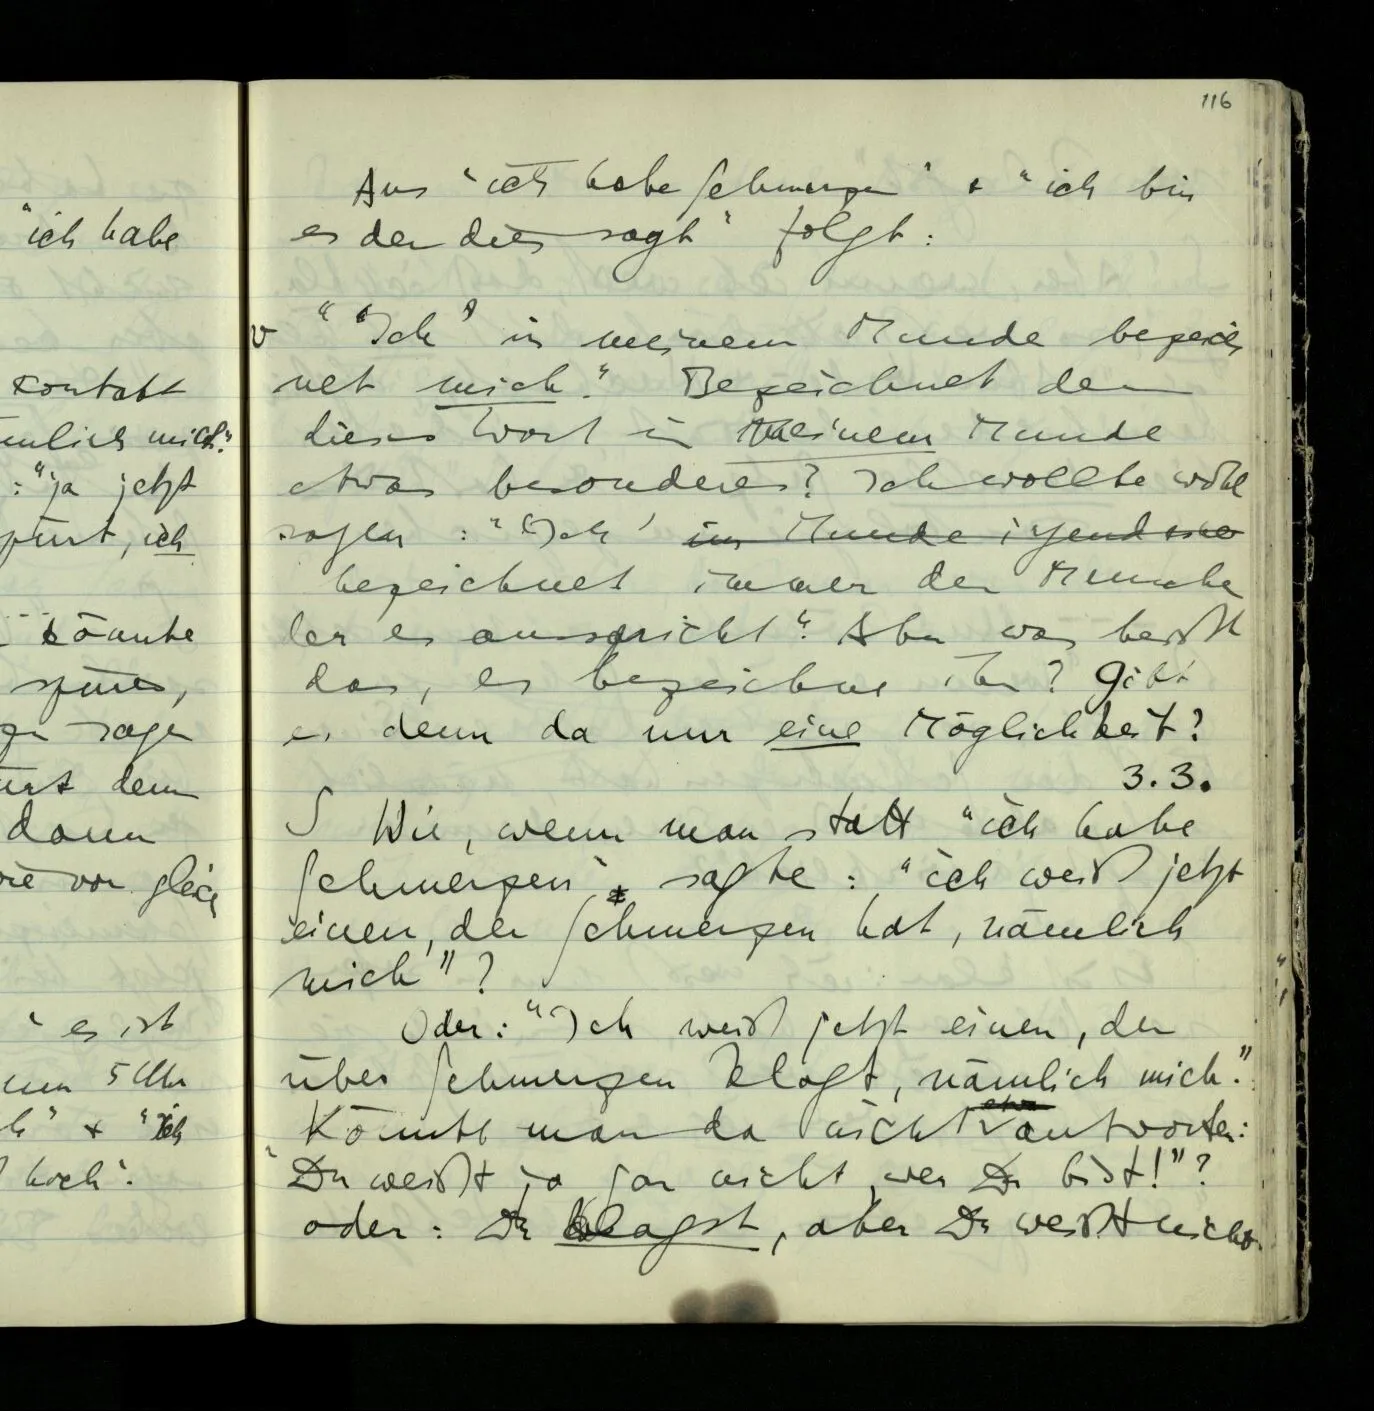 116
"ich habe
Kontakt
nämlich mich".
: "ja jetzt
spürt, ich
könnte
spüren,
zu sagen
denn
dann
wie vor gleich
" es ist
nun 5 Uhr
" & "Ich
hoch".
Aus "ich habe Schmerzen" & "ich bin
es der dies sagt" folgt:
v " 'Ich' in meinem Munde bezeich
net mich." Bezeichnet den
dieses Wort in meinem Munde
etwas besonderes? Ich wollte wohl
sagen: " 'Ich' im Munde irgend eine
bezeichnet immer den Mensche
der es ausspricht". Aber was heißt
das, es bezeichne ihn? Gibt
es denn da nur eine Möglichkeit?
3.3.
S Wie, wenn man statt "ich habe
Schmerzen", sagte: "ich weiß jetzt
einen, der Schmerzen hat, nämlich
mich"?
Oder: "Ich weiß jetzt einen, der
über Schmerzen klagt, nämlich mich."
etwa
Könnte man da nicht antworten:
"Du weißt ja gar nicht wer Du bist!"?
oder: Du klagst, aber Du weißt nicht